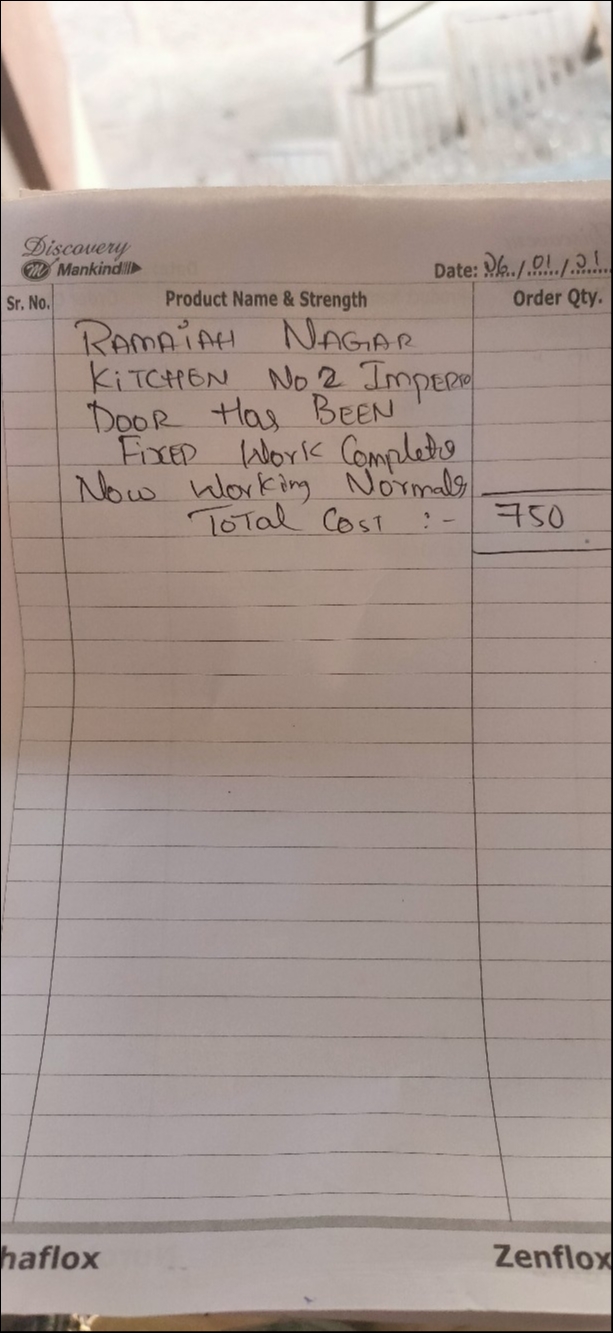 Discovery
Mankind
Date: 26/01/21
Sr. No. Product Name & Strength Order Qty.
RAMAIAH NAGAR
KITCHEN No 2 IMPERIO
DOOR Has BEEN
FIXED Work Complete
Now Working Normaly
ToTal CosT :- 750
haflox Zenflox